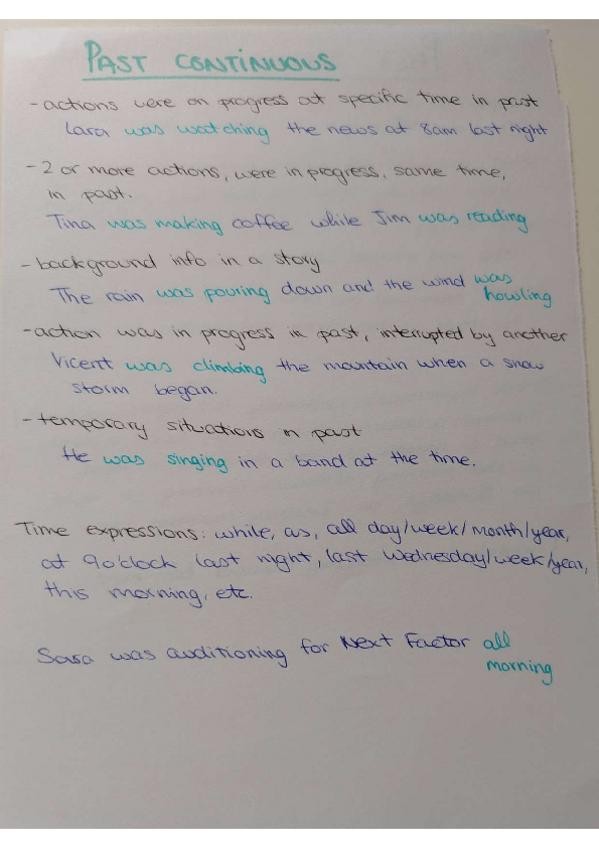 PAST CONTINUOUS
- actions were on progress at specific time in past
Lara was watching the news at 8am last night
- 2 or more actions, were in progress, same time,
in past.
Tina was making coffee while Jim was reading
- background info in a story
The rain was pouring down and the wind was
howling
- action was in progress in past, interrupted by another
Vicent was climbing the mountain when a snow
storm began.
- temporary situations in past
He was singing in a band at the time.
Time expressions: while, as, all day/week/month/year,
at 9o'clock last night, last Wednesday/week/year,
this morning, etc.
Sara was auditioning for Next Factor all
morning